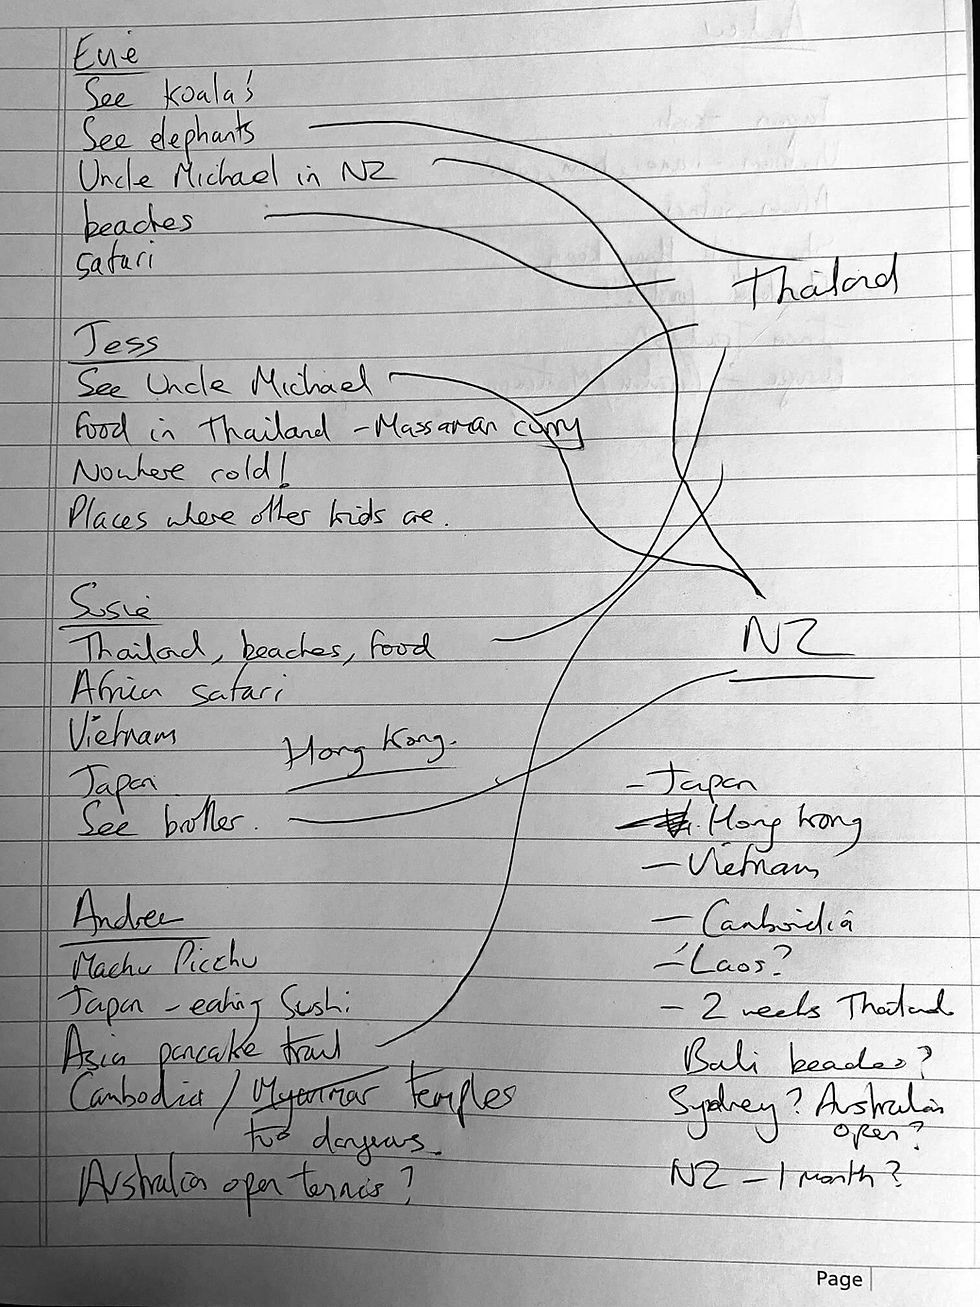 Evie
See koala's
See elephants
Uncle Michael in NZ
beaches
safari
Thailand
Jess
See Uncle Michael
Food in Thailand - Massaman curry
Nowhere cold!
Places where other kids are.
Susie
Thailand, beaches, food
Africa safari
Vietnam
Hong Kong.
Japan
See brother.
NZ
Andrew
Machu Picchu
Japan - eating Sushi
Asia pancake trail
Cambodia / Myanmar temples
too dangerous.
Australia open tennis?
- Japan
- Hong Kong
- Vietnam
- Camboidia
- Laos?
- 2 weeks Thailand
Bali beaches?
Sydney? Australian
open?
NZ - 1 month?
Page